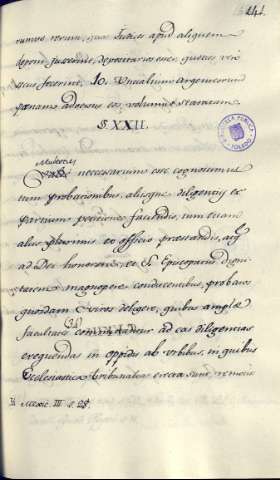 241
rumve rerum, quæ Judices apud aliquem
deponi jusserint, depositarios esse; quatus vero
secus fecerint, 10. Uncialium argenteorum
pœnam adversus eos volumus statutam.
§ XXII.
necessarium esse cognoscimus
tum probationibus, aliisque diligentiis ex
partium petitione faciendis, tum etiam
aliis plurimis ex officio præstandis,
ad Dei honorem, et S. Episcoparii digni
tatem magnopere conducentibus, probatos
quosdam viros deligere, quibus ampla
facultas committatur ad eas diligencias
exequendas in oppidis ab Urbibus, in quibus
Ecclesiastica tribunalia erecta sunt, remotis
Mexic. III. §. 28.
BIBLIOTECA PUBLICA
TOLEDO